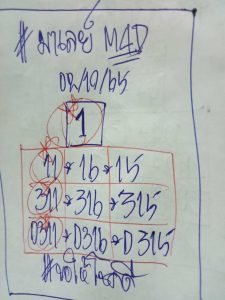 # มาเลย์ M4D
09/10/65
1
11 * 16 * 15
311 * 316 * 315
0311 * 0316 * 0315